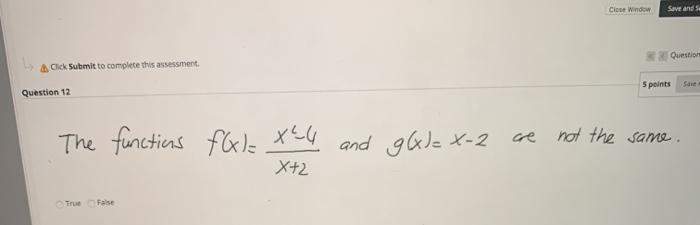 Close Window Save and S
Click Submit to complete this assessment.
Question
Question 12
5 points
The functions f(x)= x²-4 / x+2 and g(x)= x-2 are not the same.
True False